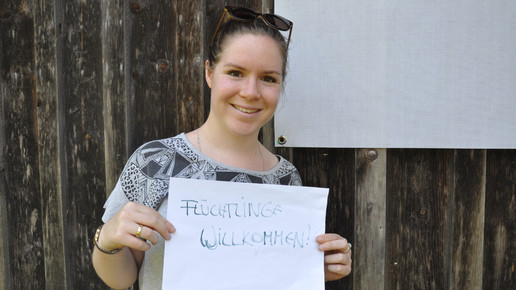 FLÜCHTLINGE
WILLKOMMEN!